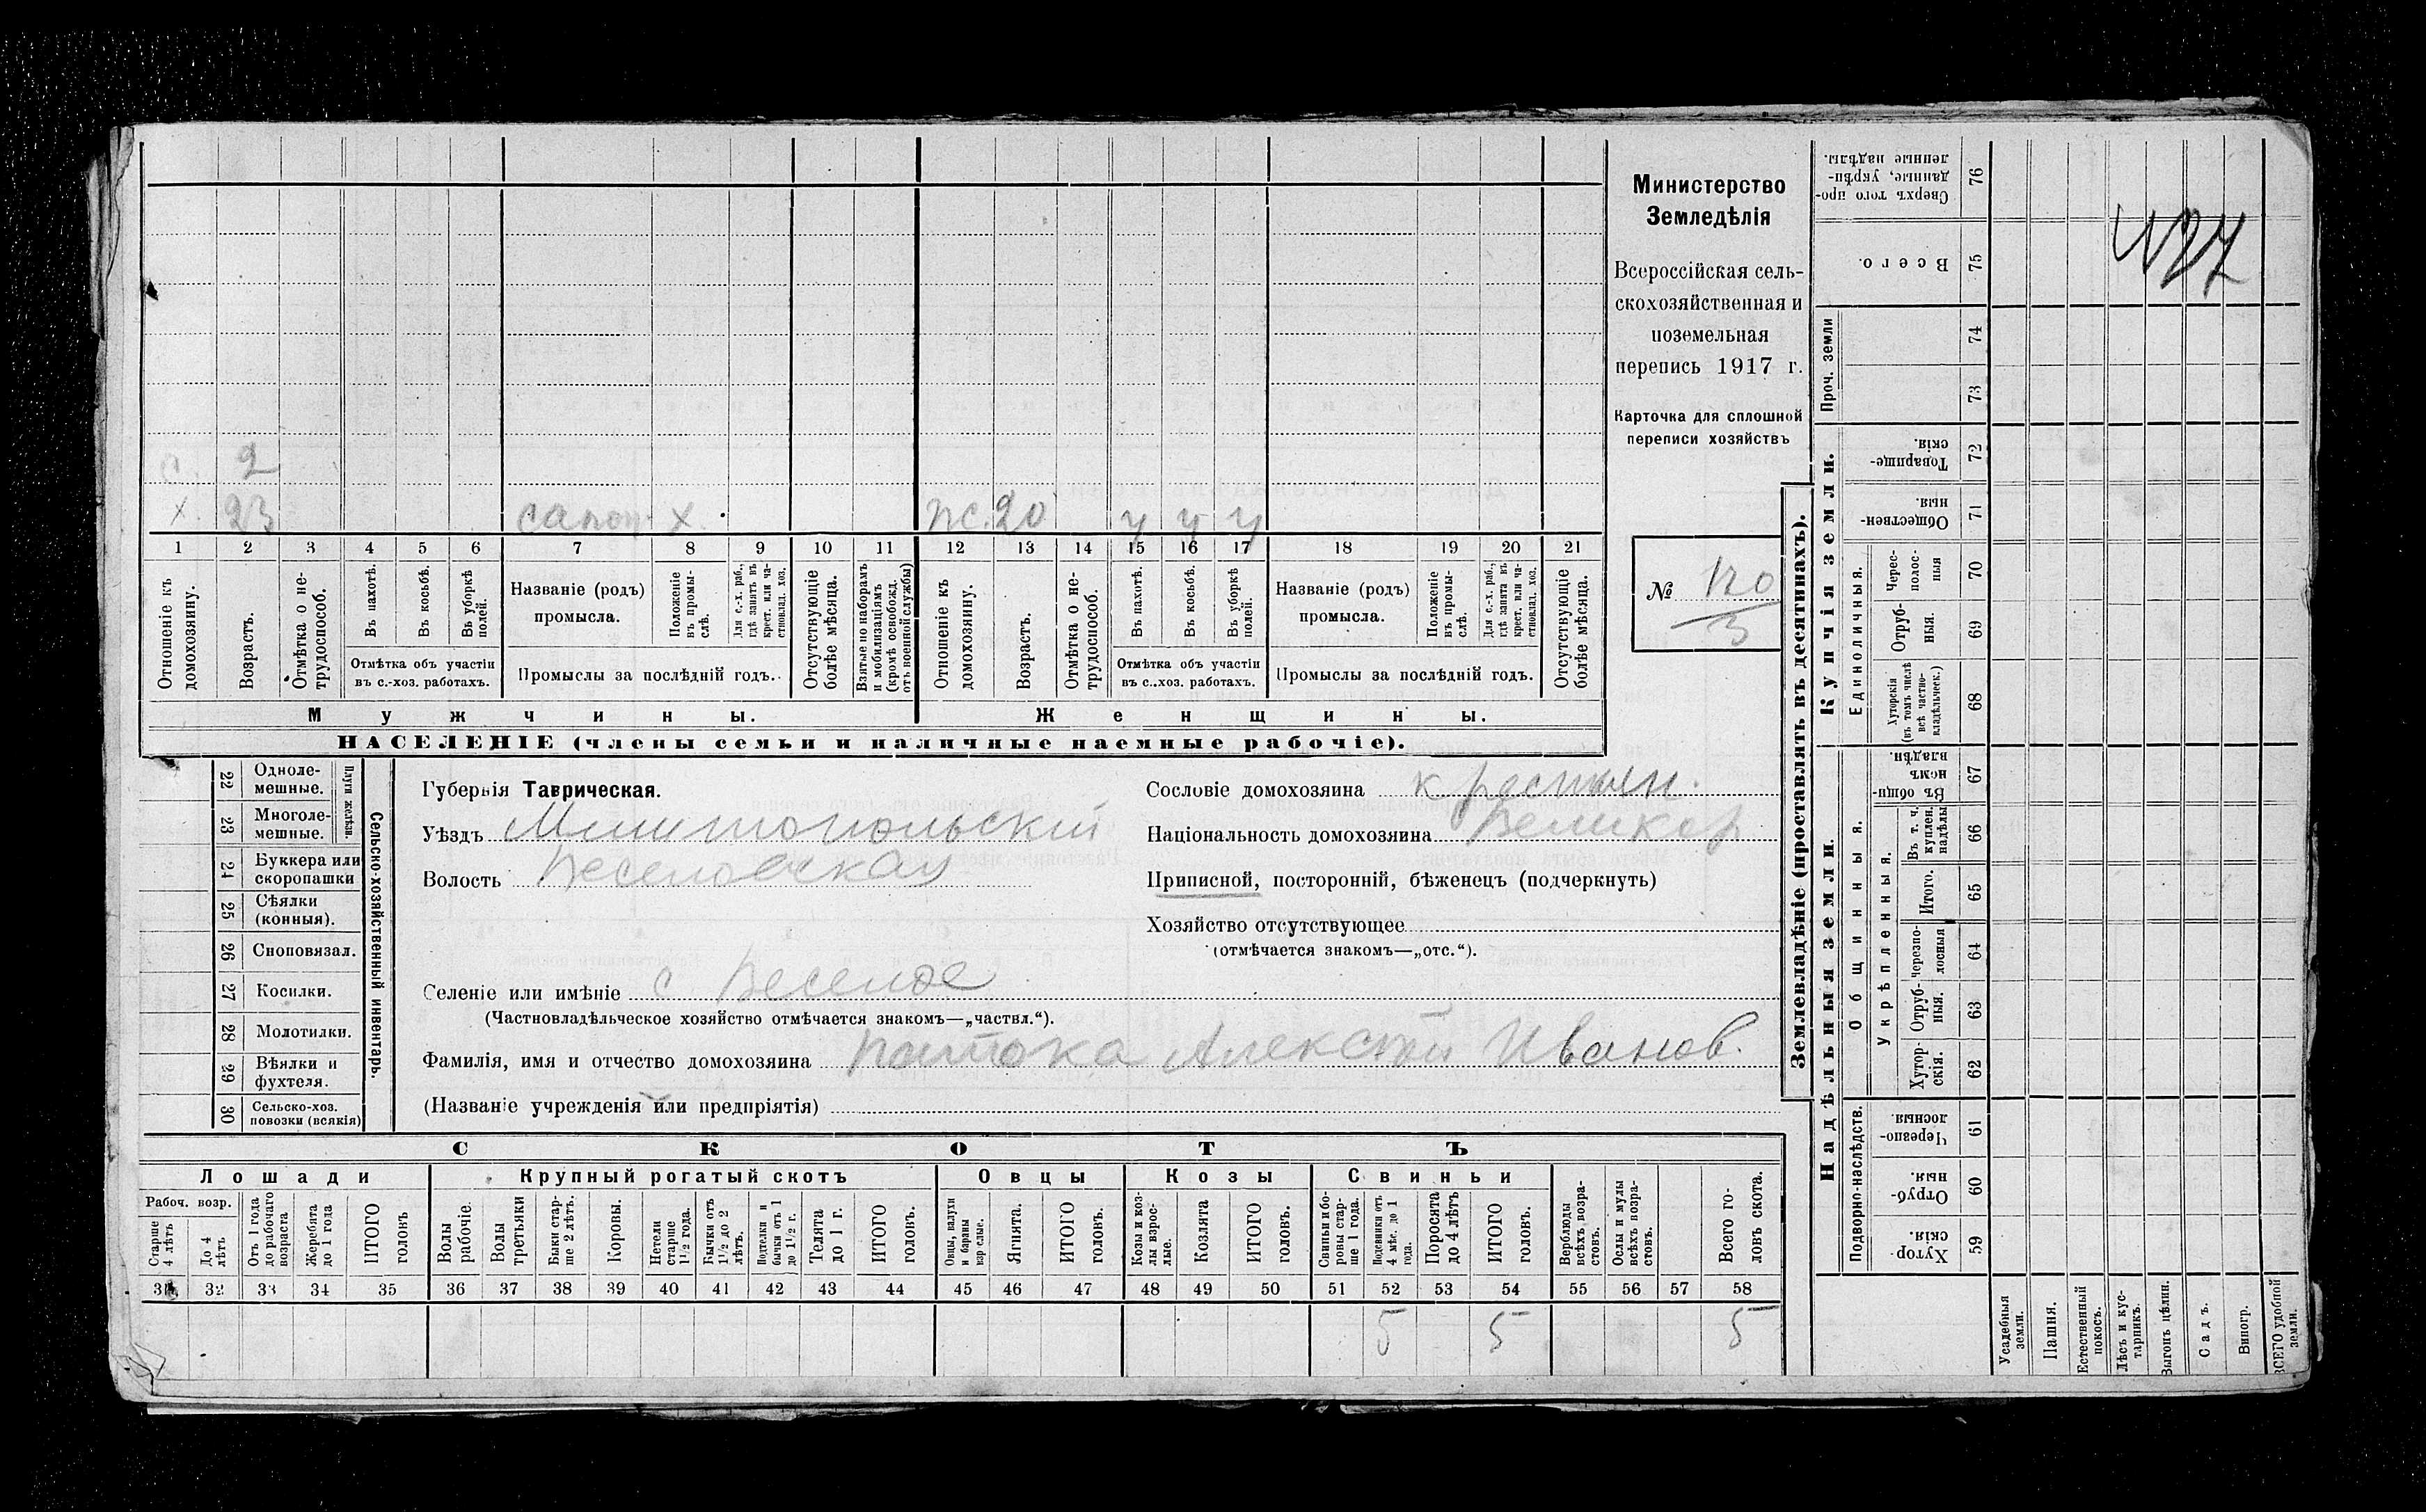 Министерство
Земледѣлія
Всероссійская сель-
скохозяйственная и
поземельная
перепись 1917 г.
Карточка для сплошной
переписи хозяйствъ
№ 120
3
с. 2
х. 23 сапож. х. ж. 20 ч ч ч
1 2 3 4 5 6 7 8 9 10 11 12 13 14 15 16 17 18 19 20 21
Отношеніе къ домохозяину.
Возрастъ.
Отмѣтка о не-трудоспособ.
Въ пахотѣ.
Въ косьбѣ.
Въ уборкѣ полей.
Отмѣтка объ участіи
въ с.-хоз. работахъ.
Названіе (родъ)
промысла.
Положеніе въ промы-слѣ.
Для с.-х. раб., гдѣ занятъ въ крест. или ча-стновлад. хоз.
Промыслы за послѣдній годъ.
Отсутствующіе болѣе мѣсяца.
Взятые по наборамъ и мобилизаціямъ (кромѣ освобожд. отъ военной службы)
Отношеніе къ домохозяину.
Возрастъ.
Отмѣтка о не-трудоспособ.
Въ пахотѣ.
Въ косьбѣ.
Въ уборкѣ полей.
Отмѣтка объ участіи
въ с.-хоз. работахъ.
Названіе (родъ)
промысла.
Положеніе въ промы-слѣ.
Для с.-х. раб., гдѣ занята въ крест. или ча-стновлад. хоз.
Промыслы за послѣдній годъ.
Отсутствующіе болѣе мѣсяца.
Мужчины.
Женщины.
НАСЕЛЕНІЕ (члены семьи и наличные наемные рабочіе).
Сельско-хозяйственный инвентарь.
Плуги желѣзн.
22 Одноле-мешные.
23 Многоле-мешные.
24 Буккера или скоропашки
25 Сѣялки (конныя).
26 Сноповязал.
27 Косилки.
28 Молотилки.
29 Вѣялки и фухтеля.
30 Сельско-хоз. повозки (всякія)
Губернія Таврическая.
Уѣздъ Мелитопольскій
Волость Веселовская
Селеніе или имѣніе с Веселое
(Частновладѣльческое хозяйство отмѣчается знакомъ—„частвл.“).
Фамилія, имя и отчество домохозяина Патока Алексѣй Иванов.
(Названіе учрежденія или предпріятія)
Сословіе домохозяина крестьян.
Національность домохозяина Великор
Приписной, посторонній, бѣженецъ (подчеркнуть)
Хозяйство отсутствующее
(отмѣчается знакомъ—„отс.“).
СКОТЪ
Лошади
Крупный рогатый скотъ
Овцы
Козы
Свиньи
Рабоч. возр.
Старше 4 лѣтъ
До 4 лѣтъ
Отъ 1 года до рабочаго возраста
Жеребята до 1 года
ИТОГО головъ
Волы рабочіе.
Волы третьяки
Быки стар-ше 2 лѣтъ.
Коровы.
Нетели старше 1½ года.
Бычки отъ 1½ до 2 лѣтъ.
Подтелки и бычки отъ 1 до 1½ г.
Телята до 1 г.
ИТОГО головъ.
Овцы, валухи и бараны взрослые.
Ягнята.
ИТОГО головъ.
Козы и коз-лы взрос-лые.
Козлята
ИТОГО головъ.
Свиньи и бо-ровы стар-ше 1 года.
Подсвинки отъ 4 мѣс. до 1 года.
Поросята до 4 лѣтъ
ИТОГО головъ.
Верблюды всѣхъ возра-стовъ.
Ослы и мулы всѣхъ возра-стовъ.
Всего го-ловъ скота.
31 32 33 34 35 36 37 38 39 40 41 42 43 44 45 46 47 48 49 50 51 52 53 54 55 56 57 58
5 5 5
Землевладѣніе (проставлять въ десятинахъ).
Надѣльныя земли.
Купчія земли.
Проч. земли
Подворно-наслѣдств.
Общинныя.
Укрѣпленныя.
Единоличныя.
Хутор-скія. 59
Отруб-ныя. 60
Черезпо-лосныя 61
Хутор-скія. 62
Отруб-ныя. 63
Черезпо-лосныя 64
Итого. 65
Въ т. ч. куплен. надѣлы 66
Въ общин-номъ владѣн. 67
Хуторскія (въ томъ числѣ всѣ частно-владѣльческ.) 68
Отруб-ныя. 69
Черес-полос-ныя 70
Обществен-ныя 71
Товарище-скія. 72
73
74
Всего. 75
Сверхъ того про-данные, укрѣп-ленные надѣлы. 76
Усадебныя земли.
Пашня.
Естественный покосъ.
Лѣсъ и кус-тарникъ.
Выгонъ цѣлин.
Садъ.
Виногр.
ВСЕГО удобной земли.